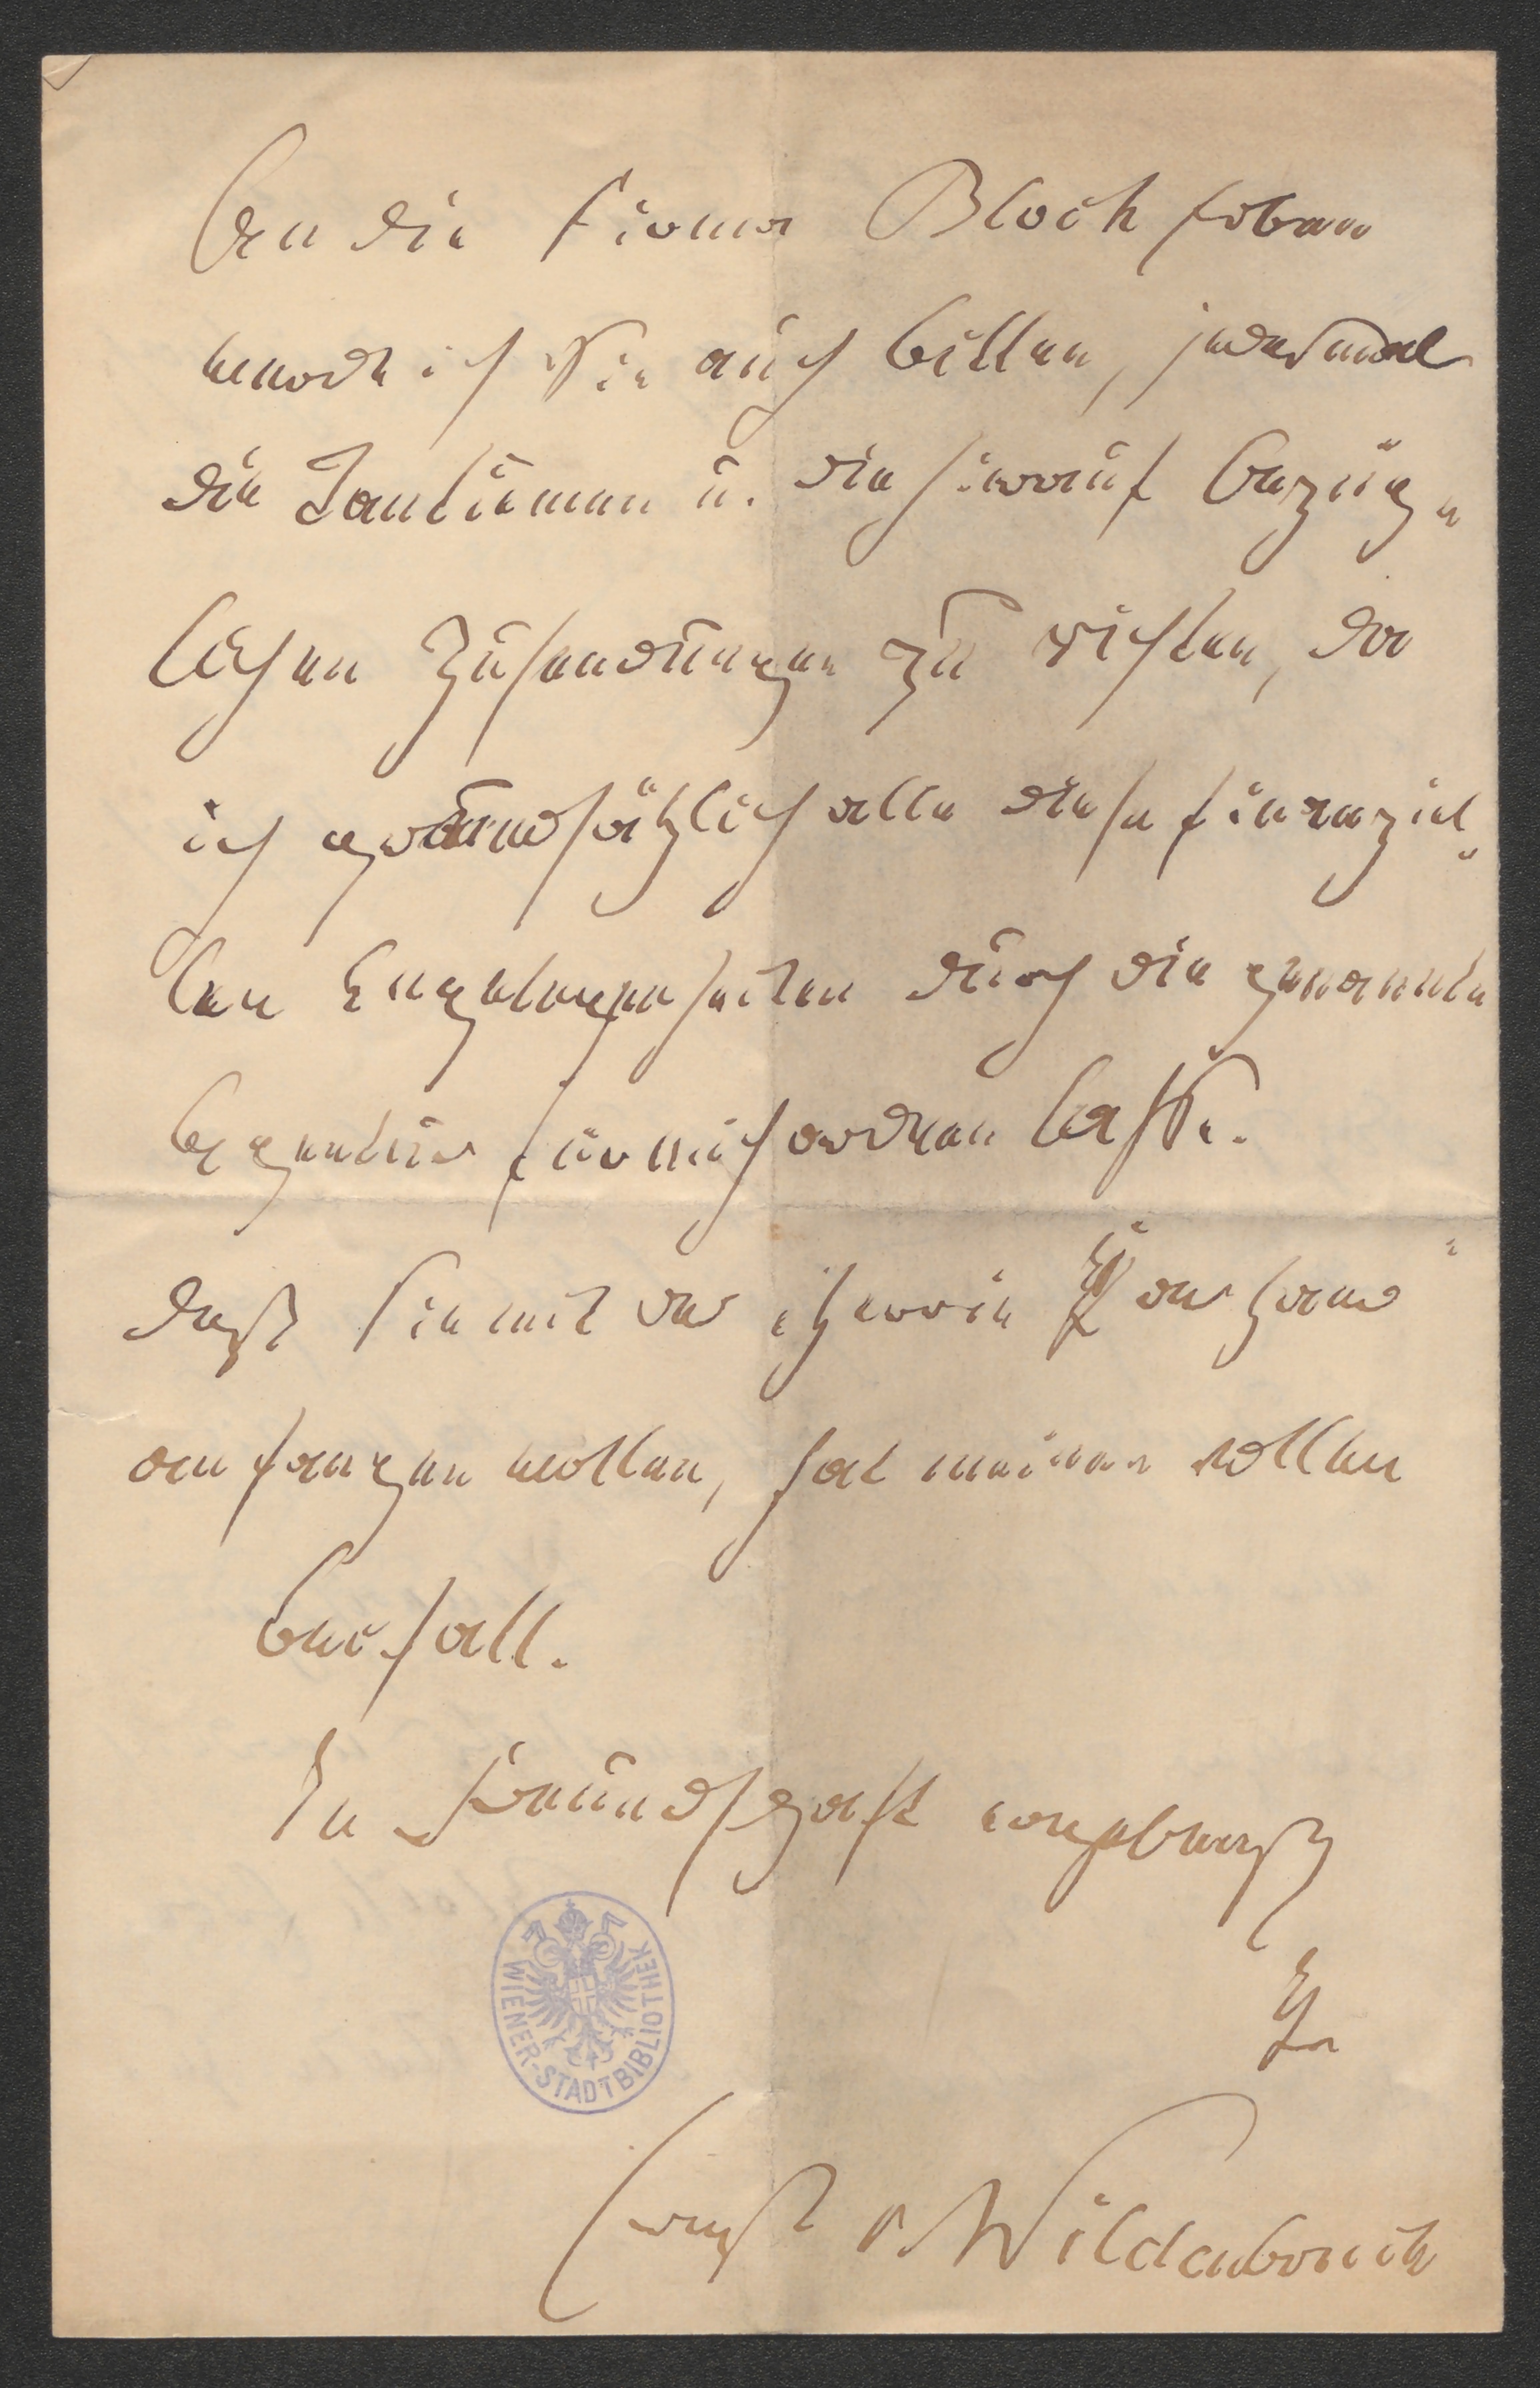 An die Firma Bloch Erben
werde ich Sie auch bitten, jedesmal
die Tantiemen u. die hierauf bezüg-
lichen Zusendungen zu richten, da
ich grundsätzlich alle diese finanziel-
len Angelegenheiten durch die genannte
Agentur für mich ordnen lasse.
Daß Sie mit der
anfangen wollen, hat meinen vollen
Beifall.
In Freundschaft ergebenst
Ihr
Ernst v. Wildenbruch
WIENER-STADTBIBLIOTHEK